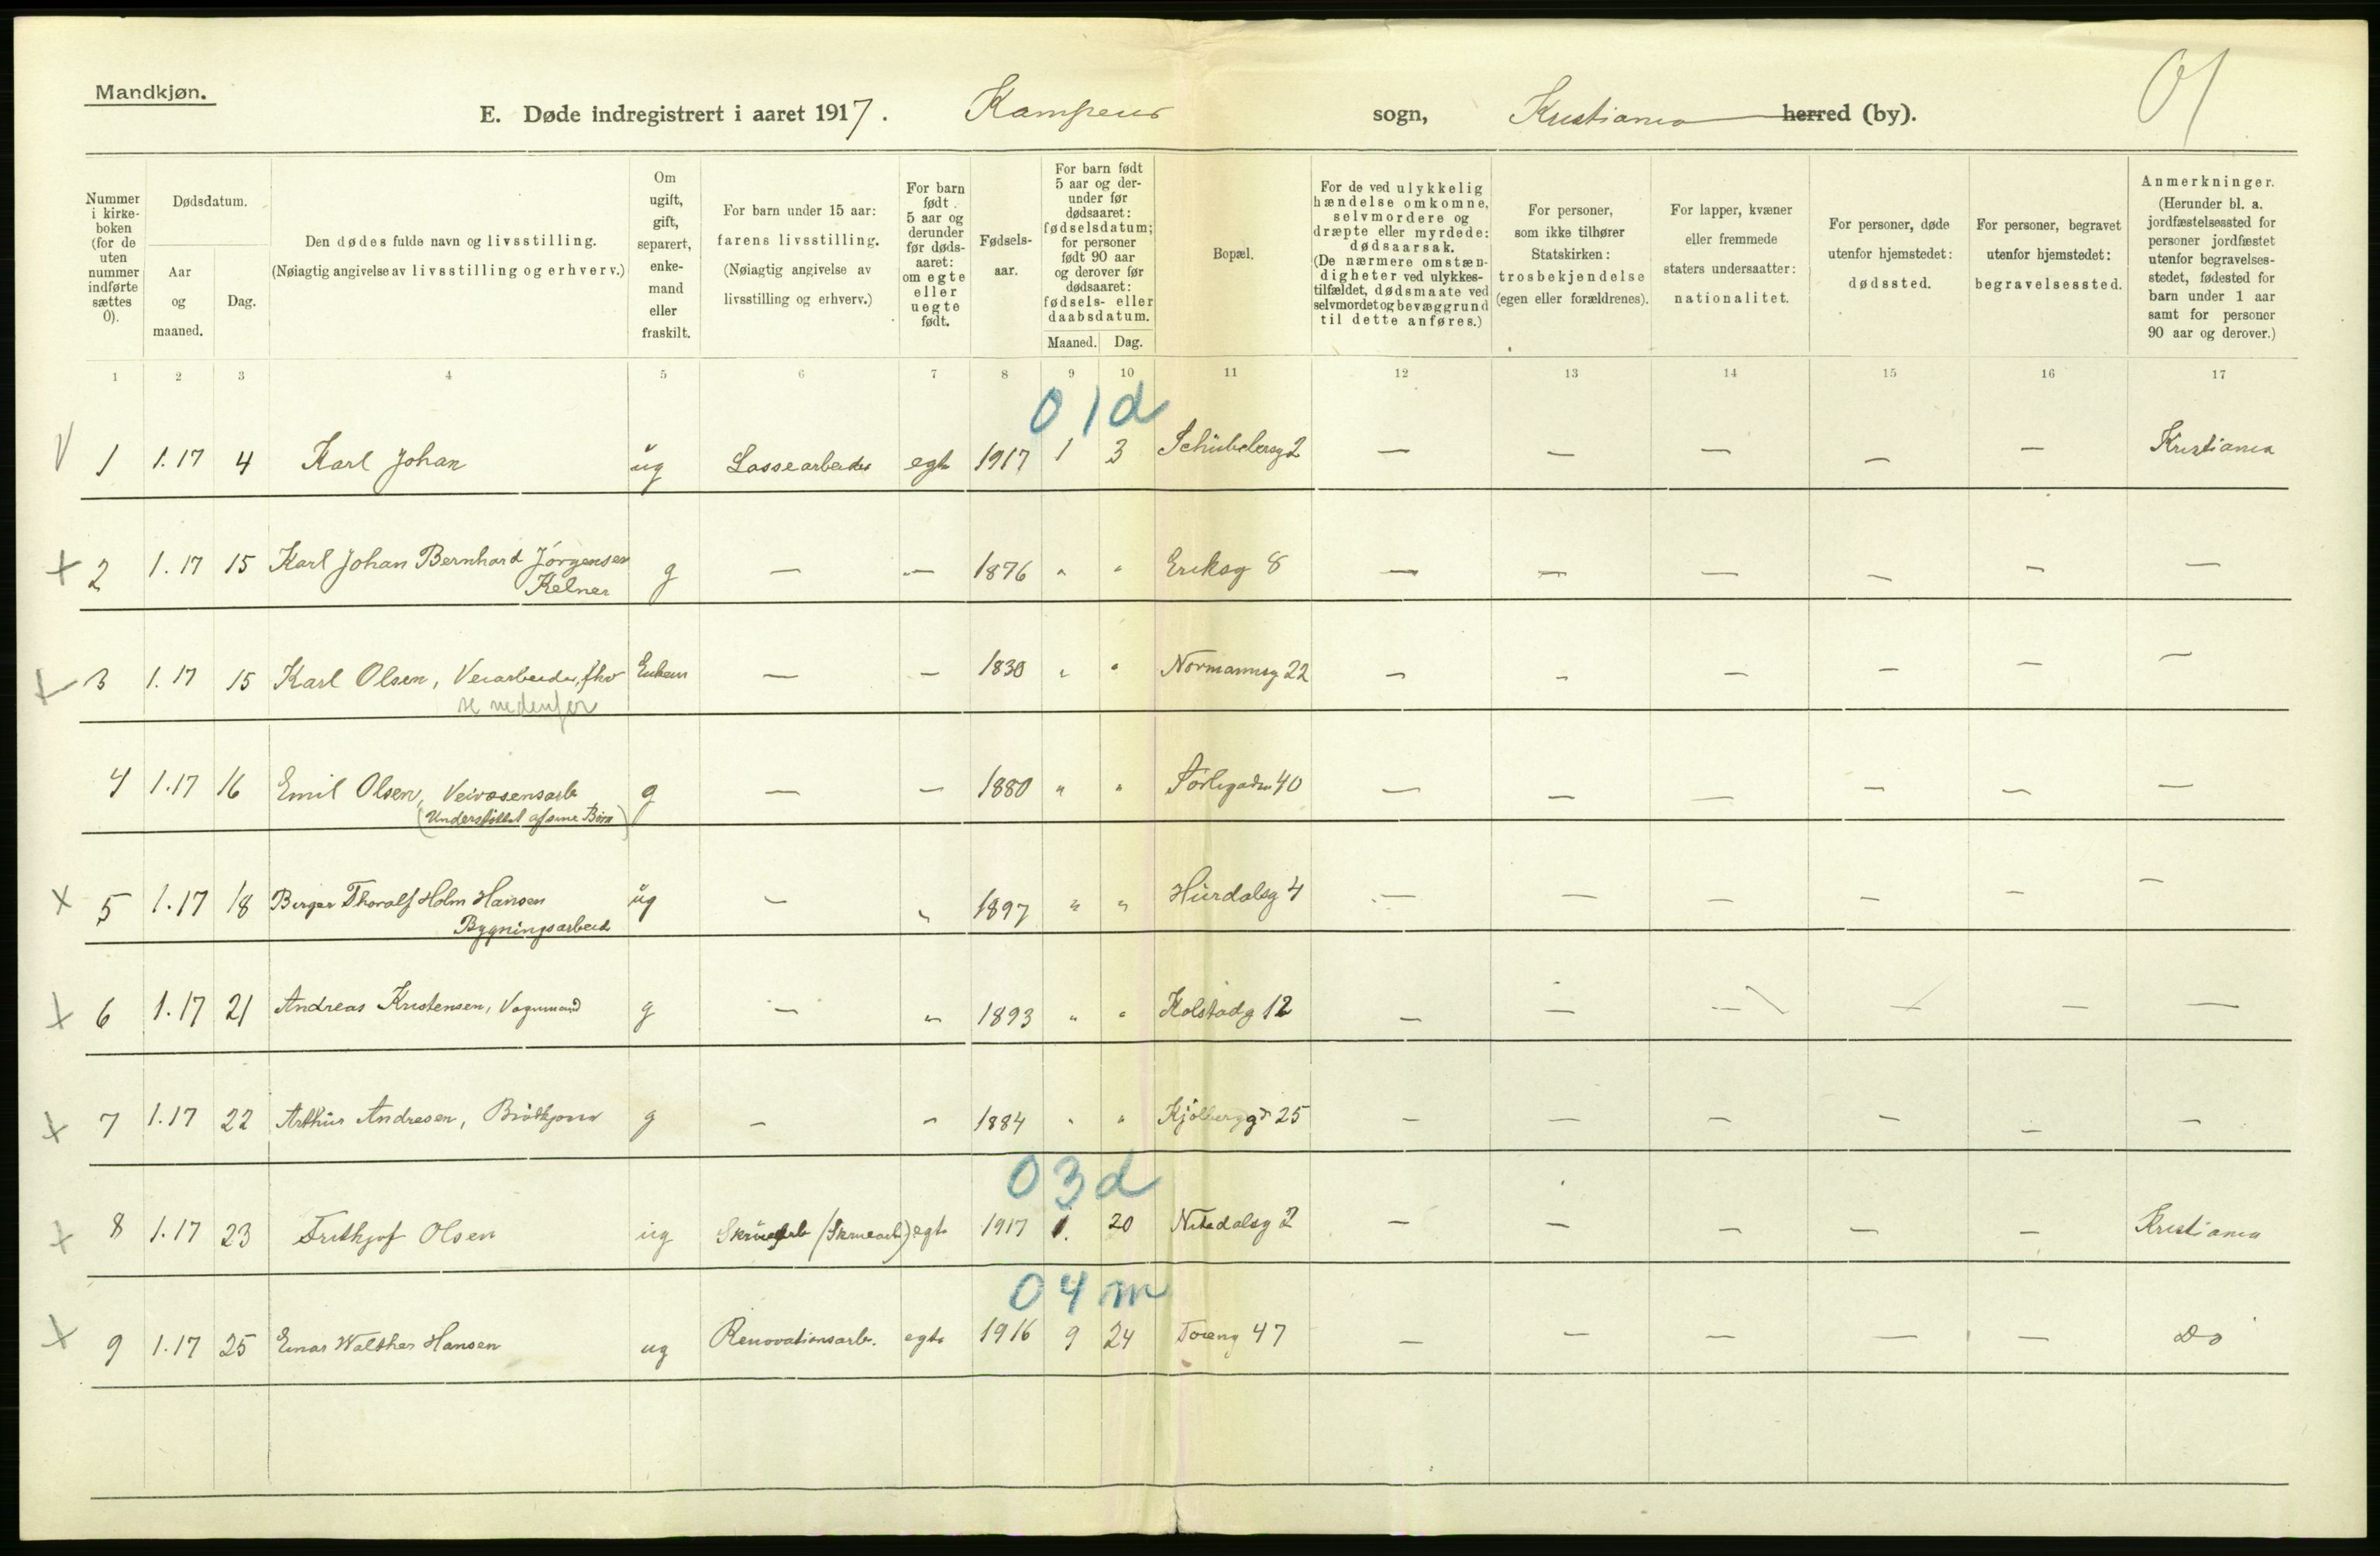 Mandkjøn.
E. Døde indregistrert i aaret 1917. Kampens sogn, Kristiania herred (by).
01
Nummer i kirke-boken (for de uten nummer indførte sættes 0).
Dødsdatum.
Aar og maaned.
Dag.
Den dødes fulde navn og livsstilling.
(Nøiagtig angivelse av livsstilling og erhverv.)
Om ugift, gift, separert, enke-mand eller fraskilt.
For barn under 15 aar: farens livsstilling. (Nøiagtig angivelse av livsstilling og erhverv.)
For barn født 5 aar og derunder før døds-aaret: om egte eller uegte født.
Fødsels-aar.
For barn født 5 aar og der-under før dødsaaret: fødselsdatum; for personer født 90 aar og derover før dødsaaret: fødsels- eller daabsdatum.
Maaned. Dag.
Bopæl.
For de ved ulykkelig hændelse omkomne, selvmordere og dræpte eller myrdede: dødsaarsak. (De nærmere omstæn-digheter ved ulykkes-tilfældet, dødsmaate ved selvmordet og bevæggrund til dette anføres.)
For personer, som ikke tilhører Statskirken: trosbekjendelse (egen eller forældrenes).
For lapper, kvæner eller fremmede staters undersaatter: nationalitet.
For personer, døde utenfor hjemstedet: dødssted.
For personer, begravet utenfor hjemstedet: begravelsessted.
Anmerkninger. (Herunder bl. a. jordfæstelsessted for personer jordfæstet utenfor begravelses-stedet, fødested for barn under 1 aar samt for personer 90 aar og derover.)
1 2 3 4 5 6 7 8 9 10 11 12 13 14 15 16 17
01d
1 1.17 4 Karl Johan ug Lossearbeider egte 1917 1 3 Schübelersg 2 — — — — — Kristiania
2 1.17 15 Karl Johan Bernhard Jörgensen g — — 1876 " " Eriksg 8 — — — — — —
Kelner
3 1.17 15 Karl Olsen, Veiarbeider, fhv Enkem — — 1830 " " Normannsg 22 — — — — — —
se nedenfor
4 1.17 16 Emil Olsen, Veivæsensarb g — — 1880 " " 40 — — — — — —
(Understöttet af sine Börn)
5 1.17 18 Birger Thoralf Holm Hansen ug — " 1897 " " Hurdalsg 4 — — — — — —
Bygningsarbeid
6 1.17 21 Andreas Kristensen, Vognmand g — " 1893 " " Kolstadg 12 — — — — — —
7 1.17 22 Arthur Andresen, g — " 1884 " " Kjölbergg 25 — — — — — —
03d
8 1.17 23 Frithjof Olsen ug (Skruearb) egte 1917 1. 20 Nitedalsg 2 — — — — — Kristiania
04m
9 1.17 25 Einar Walther Hansen ug Renovationsarb. egte 1916 9 24 Töieng 47 — — — — — Do